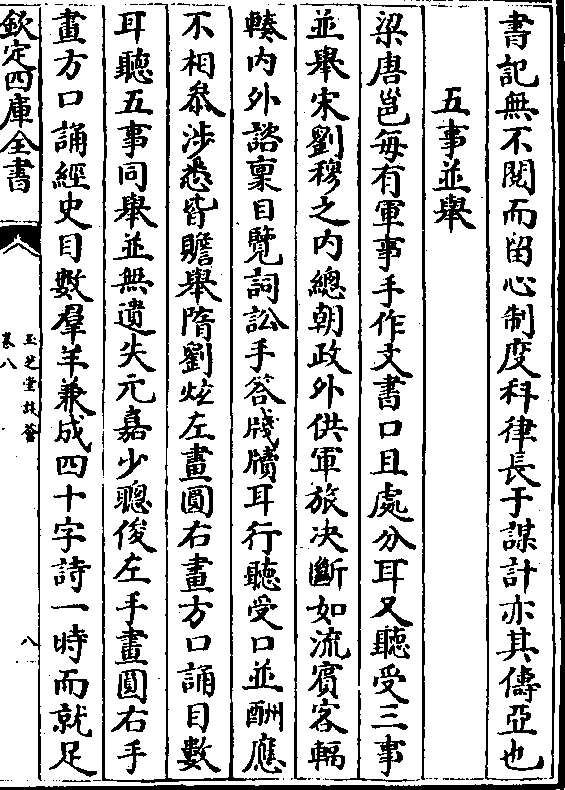 書記無不閲而留心制度科律長于謀計亦其儔亞也
五事並舉
梁唐邕每有軍事手作文書口且處分耳又聽受三事
並舉宋劉穆之内總朝政外供軍旅决斷如流賓客輻
輳内外諮稟目覽詞訟手答牋牘耳行聽受口並酬應
不相叅涉悉皆贍舉隋劉炫左畫圓右畫方口誦目數
耳聽五事同舉並無遺失元嘉少聰俊左手畫圓右手
畫方口誦經史目數羣羊兼成四十字詩一時而就足
欽定四庫全書
玉芝堂談薈
卷八
八